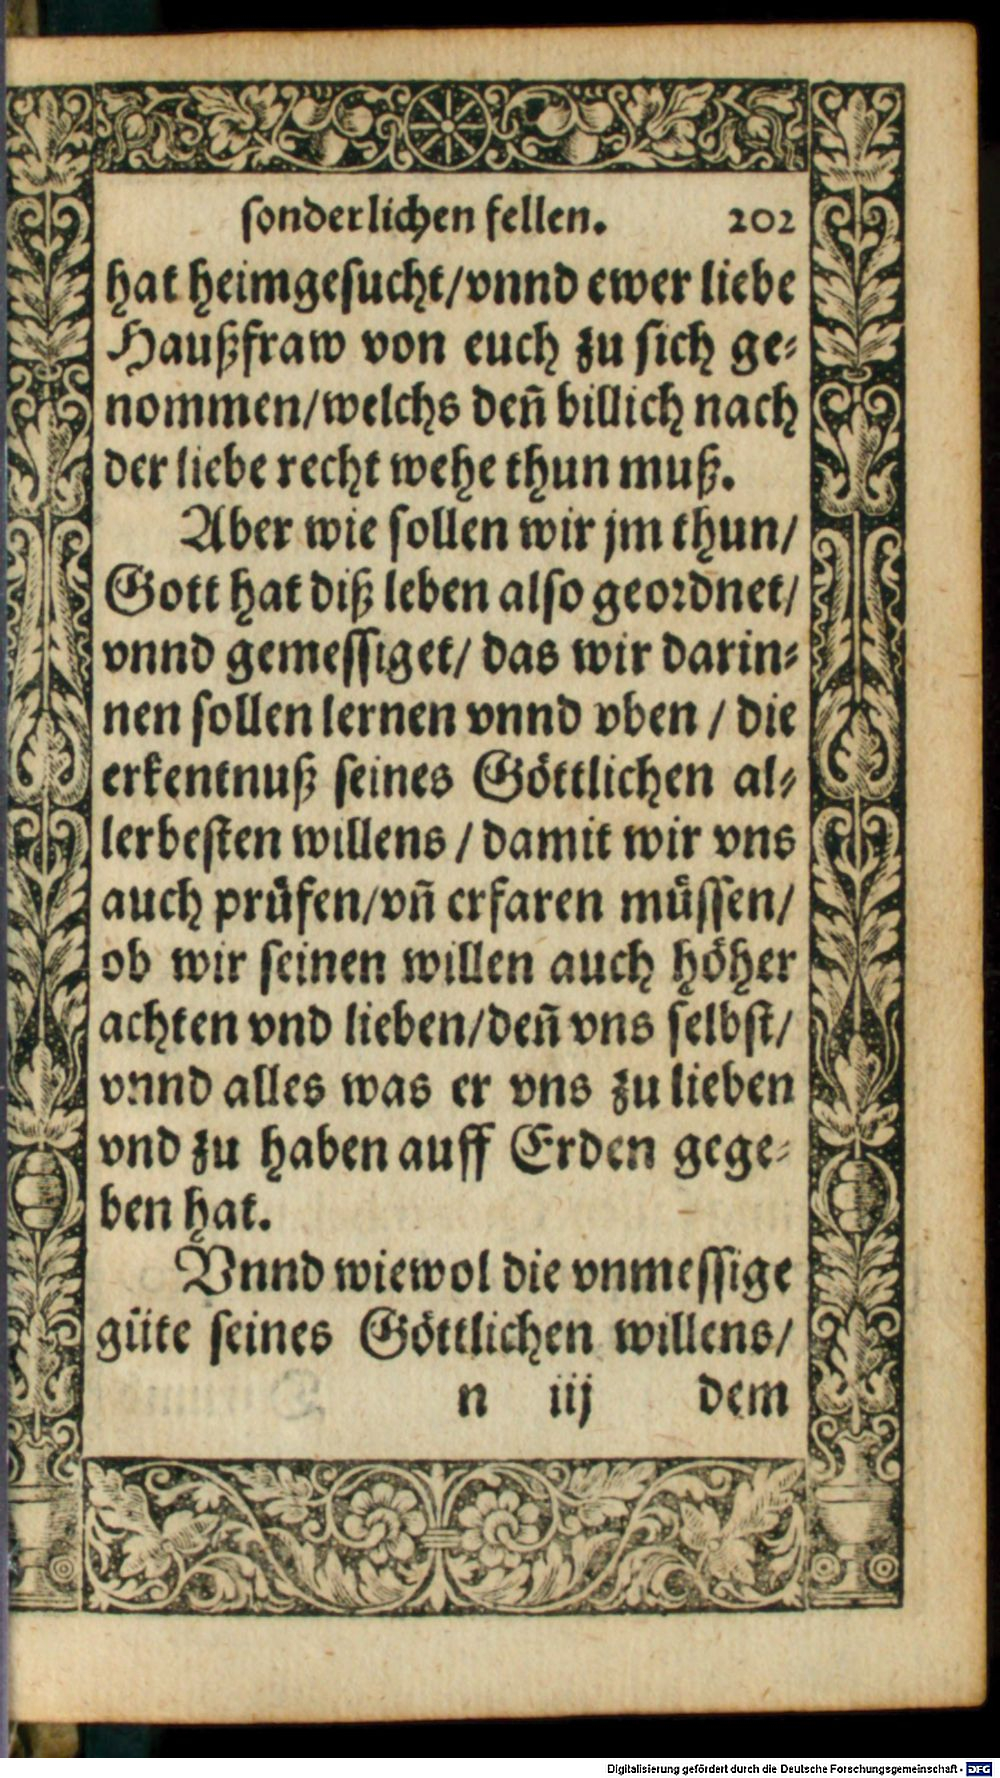 sonderlichen fellen. 202
hat heimgesucht/vnnd ewer liebe
Haußfraw von euch zu sich ge⸗
nommen/welchs deñ billich nach
der liebe recht wehe thun muß.
Aber wie sollen wir jm thun/
Gott hat diß leben also geordnet/
vnnd gemessiget/ das wir darin⸗
nen sollen lernen vnnd vben / die
erkentnuß seines Göttlichen al⸗
lerbesten willens / damit wir vns
auch prüfen/vñ erfaren müssen/
ob wir seinen willen auch höher
achten vnd lieben/deñ vns selbst/
vnnd alles was er vns zu lieben
vnd zu haben auff Erden gege⸗
ben hat.
Vnnd wiewol die vnmessige
güte seines Göttlichen willens/
n iij dem
Digitalisierung gefördert durch die Deutsche Forschungsgemeinschaft - DFG